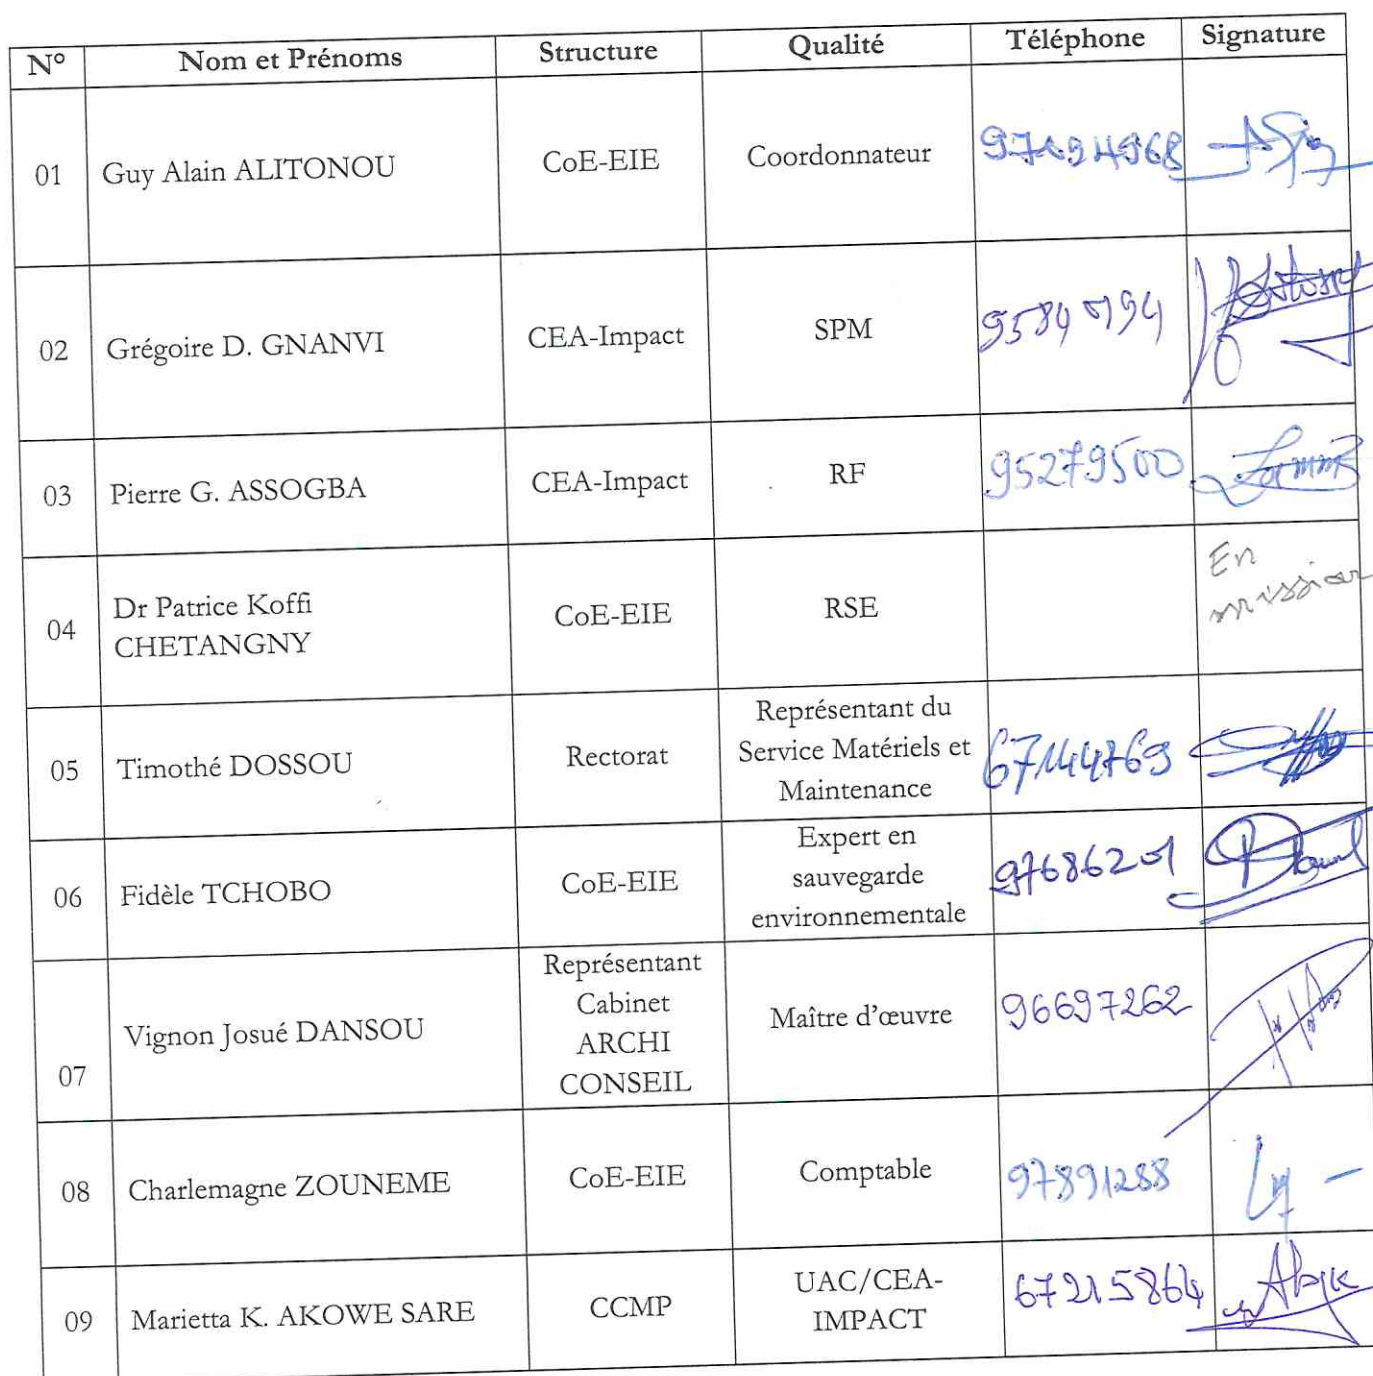 N° Nom et Prénoms Structure Qualité Téléphone Signature
01 Guy Alain ALITONOU CoE-EIE Coordonnateur
02 Grégoire D. GNANVI CEA-Impact SPM
03 Pierre G. ASSOGBA CEA-Impact RF 95279500
04 Dr Patrice Koffi
CHETANGNY
CoE-EIE RSE
En
mission
05 Timothé DOSSOU Rectorat
Représentant du
Service Matériels et
Maintenance
06 Fidèle TCHOBO CoE-EIE
Expert en
sauvegarde
environnementale
97686201
07 Vignon Josué DANSOU
Représentant
Cabinet
ARCHI
CONSEIL
Maître d'œuvre 96697262
08 Charlemagne ZOUNEME CoE-EIE Comptable 97891288
09 Marietta K. AKOWE SARE CCMP
UAC/CEA-
IMPACT
67215864